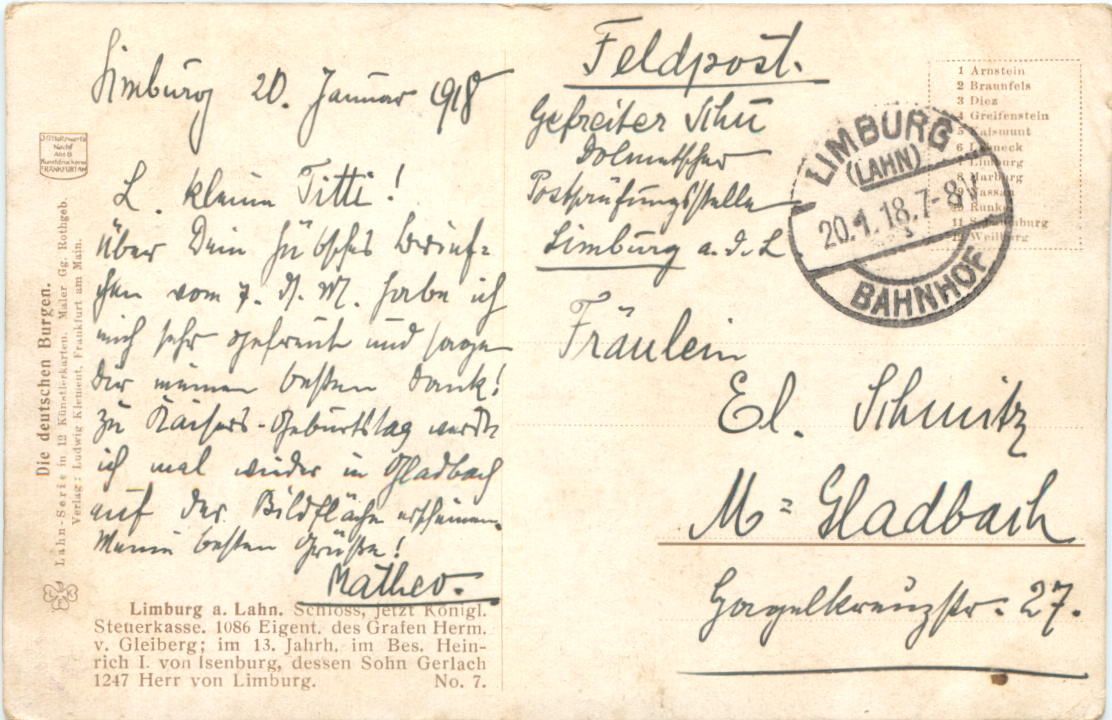 Limburg 20. Januar 1918
L. kleine Titti!
Über Dein hübsches Brief-
chen vom 7. d. M. habe ich
mich sehr gefreut und sage
Dir meinen besten Dank!
Zu Kaisers-Geburtstag werde
ich mal wieder in Gladbach
auf der Bildfläche erscheinen.
Meine besten Grüße!
Matheo.
Limburg a. Lahn. Schloss, jetzt Königl.
Steuerkasse. 1086 Eigent. des Grafen Herm.
v. Gleiberg; im 13. Jahrh. im Bes. Hein-
rich I. von Isenburg, dessen Sohn Gerlach
1247 Herr von Limburg. No. 7.
Die deutschen Burgen.
Lahn-Serie in 12 Künstlerkarten. Maler Gg. Rothgeb.
Verlag: Ludwig Klement, Frankfurt am Main.
FRANKFURT a/M
Feldpost.
Gefreiter Schu
Dolmetscher
Postprüfungsstelle
Limburg a. d. L
Fräulein
El. Schmitz
M=Gladbach
Gagelkreuzstr. 27.
1 Arnstein
2 Braunfels
3 Diez
4 Greifenstein
5 Kaismunt
6
7 Limburg
8 Marburg
9 Nassau
10 Runkel
11
12 Weilburg
LIMBURG
(LAHN)
20.1.18.7-8V
BAHNHOF